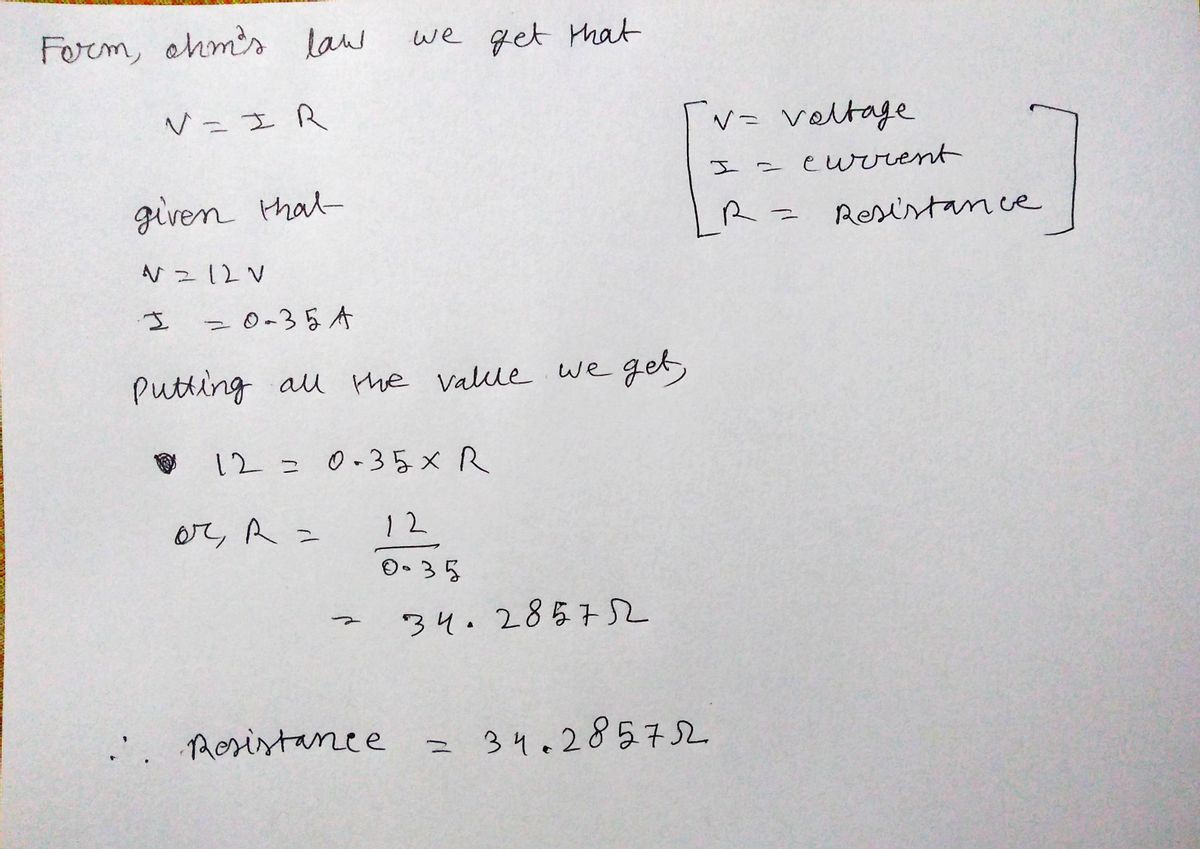 Form, ohm's law we get that
V = I R
[V = voltage
I = current
R = Resistance]
given that
V = 12 V
I = 0.35 A
Putting all the value we get,
12 = 0.35 × R
or, R = 12
0.35
= 34.2857Ω
∴ Resistance = 34.2857Ω